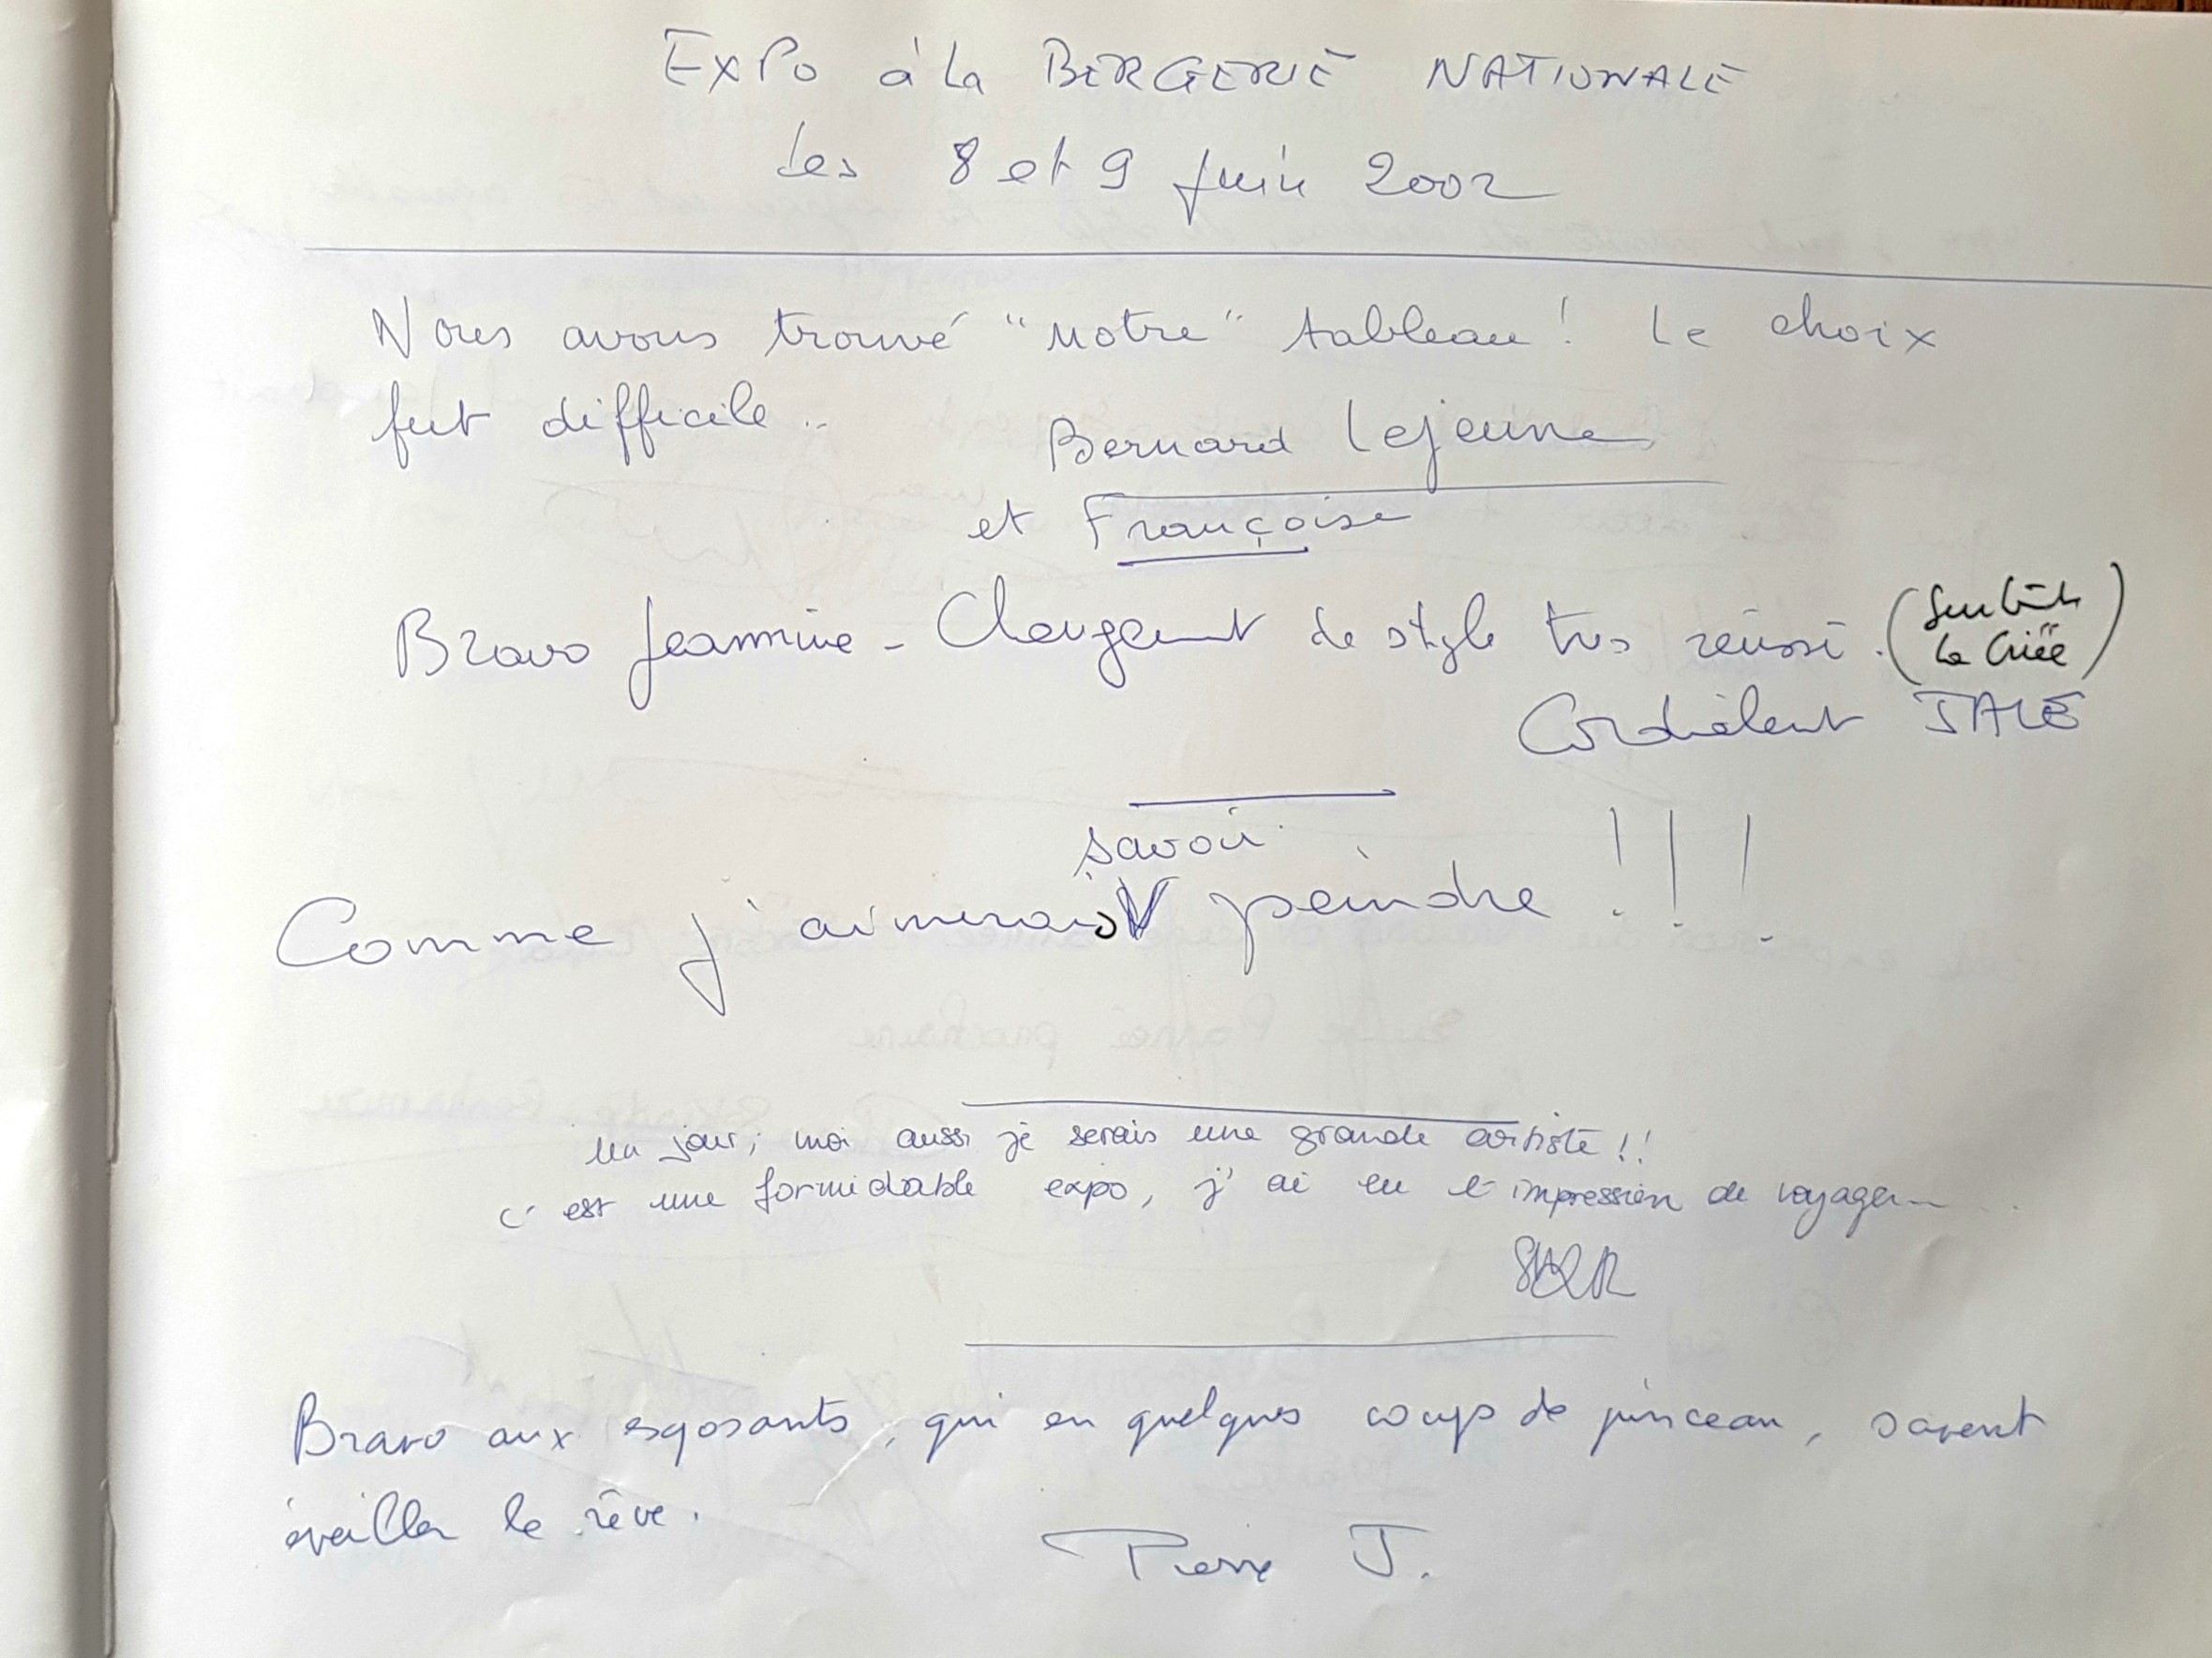 EXPO à la BERGERIE NATIONALE
les 8 et 9 Juin 2002
Nous avons trouvé "notre" tableau ! Le choix
fut difficile ..
Bernard Lejeune
et Françoise
Bravo Jeannine - Changement de style très réussi. (
la Criée)
Cordialement JALE
savoir
Comme j'aimerais V peindre !!!
Un jour, moi aussi je serais une grande artiste !!
c'est une formidable expo, j'ai eu l'impression de voyager...
Bravo aux exposants, qui en quelques coups de pinceau, savent
éveiller le rêve.
Pierre J.